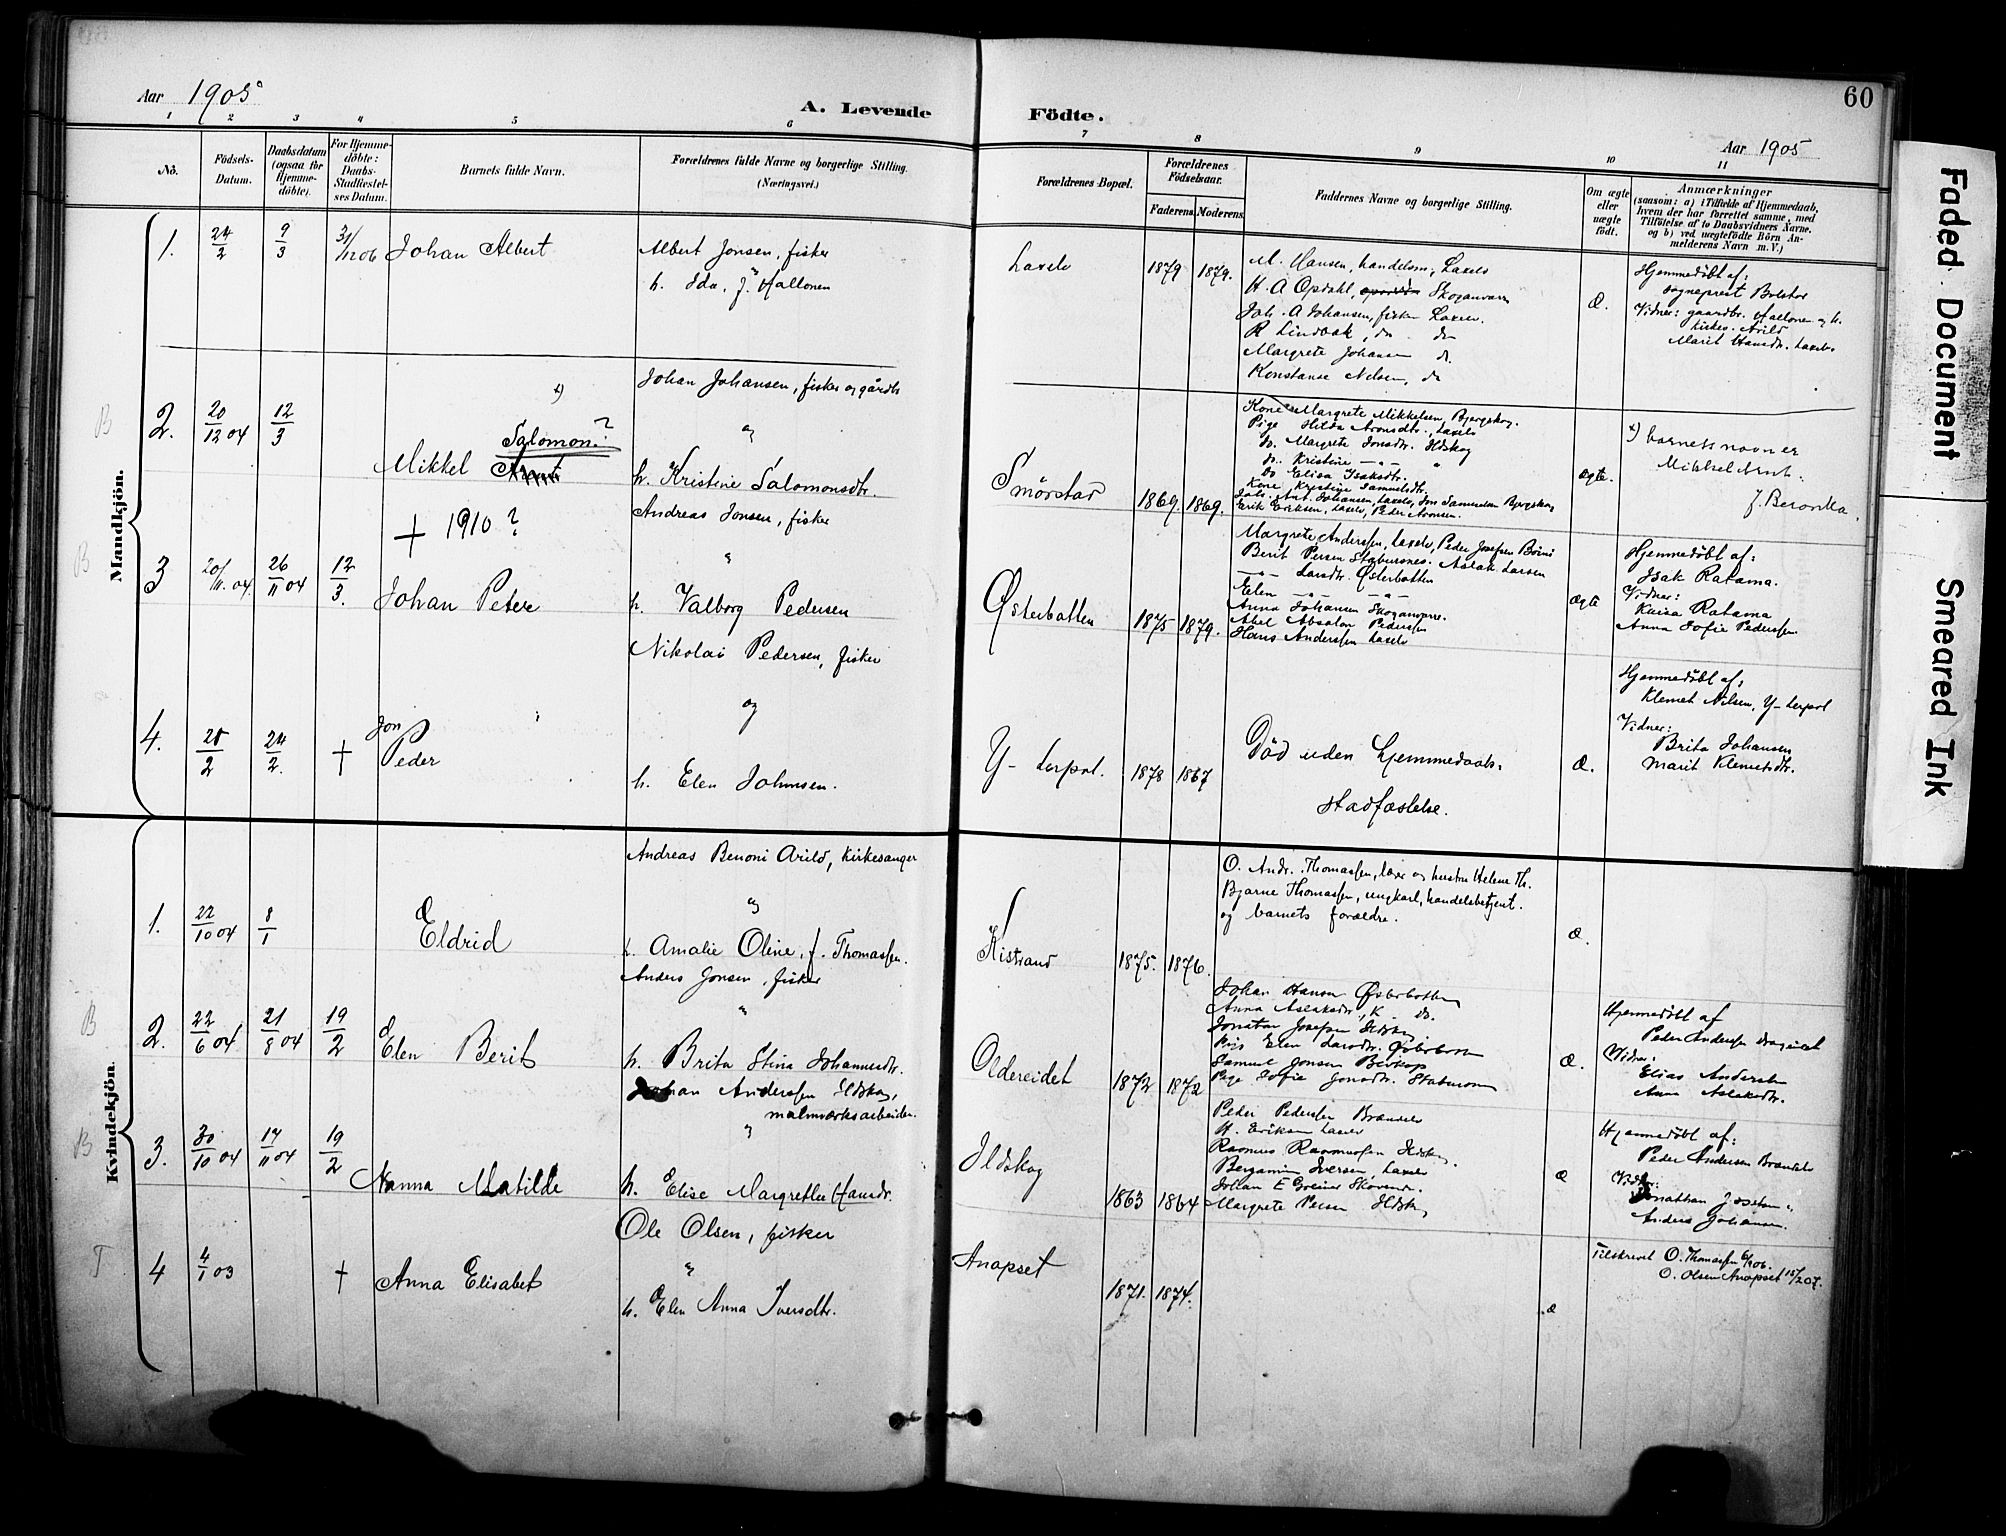 60
Aar 1905
A. Levende
Födte.
Aar 1905
1 2 3 4 5 6 7 8 9 10 11
No.
Födsels-
Datum.
Daabsdatum
(ogsaa for
Hjemme-
döbte).
For Hjemme-
döbte:
Daabs-
Stadfæstel-
ses Datum.
Barnets fulde Navn.
Forældrenes fulde Navne og borgerlige Stilling.
(Næringsvei.)
Forældrenes Bopæl.
Forældrenes
Födselsaar.
Faderens Moderens
Faddernes Navne og borgerlige Stilling.
Om ægte
eller
uægte
födt.
Anmærkninger
(saasom: a) i Tilfælde af Hjemmedaab,
hvem der har forrettet samme, med
Tilföielse af to Daabsvidners Navne.
og b) ved uægtefödte Börn An-
melderens Navn m. V.)
Mandkjön.
1. 24/2 9/3 31/12 06 Johan Albert
Albert Jonsen, fisker
h. Ida, f. Hallonen
Laxelv 1879 1879.
M. Hansen, handelsm, Laxelv
H. A Opdahl, Skoganvarre
Joh. A Johansen, fisker Laxelv.
R Lindbak, do do
Margrete Johansen do
Konstanse Nilsen, do
Æ.
Hjemmedöbt af:
sogneprest Bolstad
Vidner: gaardbr. Hallonen og h.
kirkes. Arild
Marit Hansdr. Laxelv
B 2. 20/12 04 12/3
x)
Salomon?
Mikkel Arnt
+ 1910?
Johan Johansen, fisker og gårdb
og
h. Kristine Salomonsdtr.
Smörstad 1869. 1869.
Kone Margrete Mikkelsen, Bjergskog.
Pige Hilda Aronsdtr., Laxelv
do. Margrete Jonsdtr. Ildskog
do. Kristine — " — "
do Elisa Isaksdtr.
Kone Kristine Samuelsdtr.
Johs. Ant. Johansen, Laxelv, Jon Samuelsen Bjergskog
Erik Eriksen, Laxelv, Peder Aronsen.
Ægte.
x) barnets navn er
Mikkel Arnt.
B 3 20/11. 04 26/11 04 12/3. Johan Peter
Andreas Jonsen, fisker
"
h. Valborg Pedersen
Østerbotten 1875 1879.
Margrete Anderssen, Laxelv, Peder Josefsen
Berit Persen Stabursnes. Aslak Larsen
— " — Larsdtr. Østerbotten
Elen — " — — " —
Anna Johansen Skoganvarre.
Abel Absalon Pedersen
Hans Anderssen Laxelv
Ægte
Hjemmedöbt af:
Isak Ratama.
Vidner:
Kaisa Ratama
Anna Sofie Pederssen.
4. 20/2 24/2. + Jon
Peder
Nikolai Pedersen, fisker
og
h. Elen Johnsen.
Y- Lerpol. 1878 1867
Död uden hjemmedaabs-
stadfæstelse.
Æ.
Hjemmedöbt af:
Klemet Nilsen, Y- Lerpol
Vidner:
Brita Johansen
Marit Klemetsdtr.
Kvindekjön.
1. 22/10 04 8/1 Eldrid
Andreas Benoni Arild, kirkesanger
og
h. Amalie Oline, f. Thomassen.
Kistrand 1875. 1876.
O. Andr. Thomassen, lærer og hustru Helene Th.
Bjarne Thomassen, ungkarl, handelsbetjent.
og barnets forældre.
Æ.
B 2. 22/6 04 21/8 04 19/2 Elen Berit
Anders Jonsen, fisker
"
h. Brita Stina Johannesdtr.
Oldereidet 1872 1872
Johan Hansen Østerbotten
Anna Aslaksdtr, K do.
Jonatan Josefsen Ildskog
Pige Elen Larsdtr. Østerbotten
Samuel Jonsen
Pige Sofie Jonsdtr.
Æ.
Hjemmedöbt af
Peder Anderssen
Vidner:
Elias Anderssen
Anna Aslaksdtr.
B 3. 30/10 04 17/11 04 19/2 Nanna Matilde
Johan Anderssen Ildskog,
malmværksarbeider.
"
h. Elise Margrethe Hansdr.
Ildskog 1863 1864
Peder Pedersen Brændelv
H. Eriksen Laxelv
Rasmus Rasmussen Ildskog.
Benjamin Iversen Laxelv
Johan E Greiner
Margrete Persen Ildskog
Æ
Hjemmedöbt af:
Peder Andersen Brændelv
Vidner:
Jonathan Josefsen
Anders Johansen.
T 4 4/1 03 + Anna Elisabet
Ole Olsen, fisker
"
h. Elen Anna Iversdtr.
Anopset 1871. 1874.
æ
Tilskrevet O. Thomassen 6/906.
O. Olsen Anopset 15/207.
Faded Document
Smeared Ink